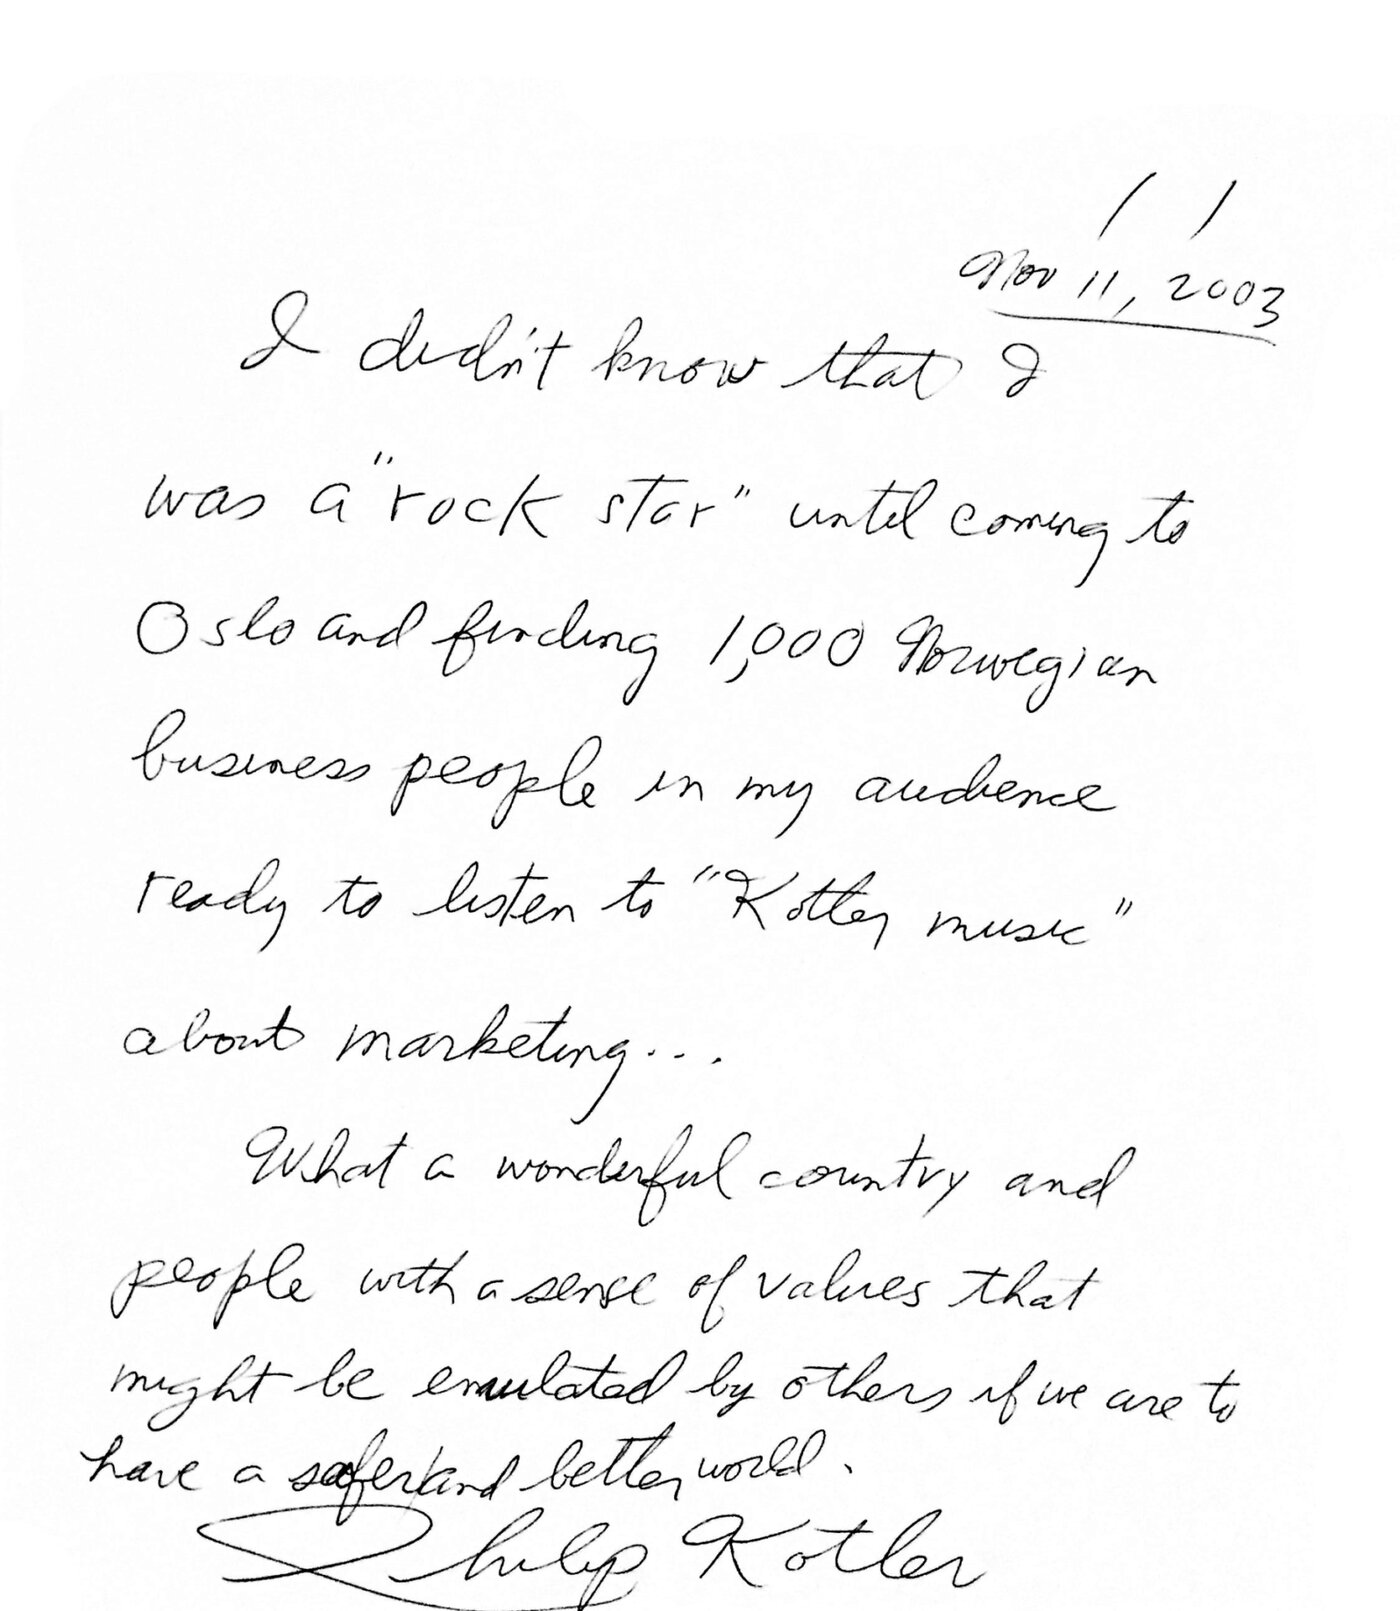 Nov 11, 2003
I didn't know that I
was a "rock star" until coming to
Oslo and finding 1,000 Norwegian
business people in my audience
ready to listen to "Kotler music"
about marketing...
What a wonderful country and
people with a sense of values that
might be emulated by others if we are to
have a safer/and better world.
Philip Kotler